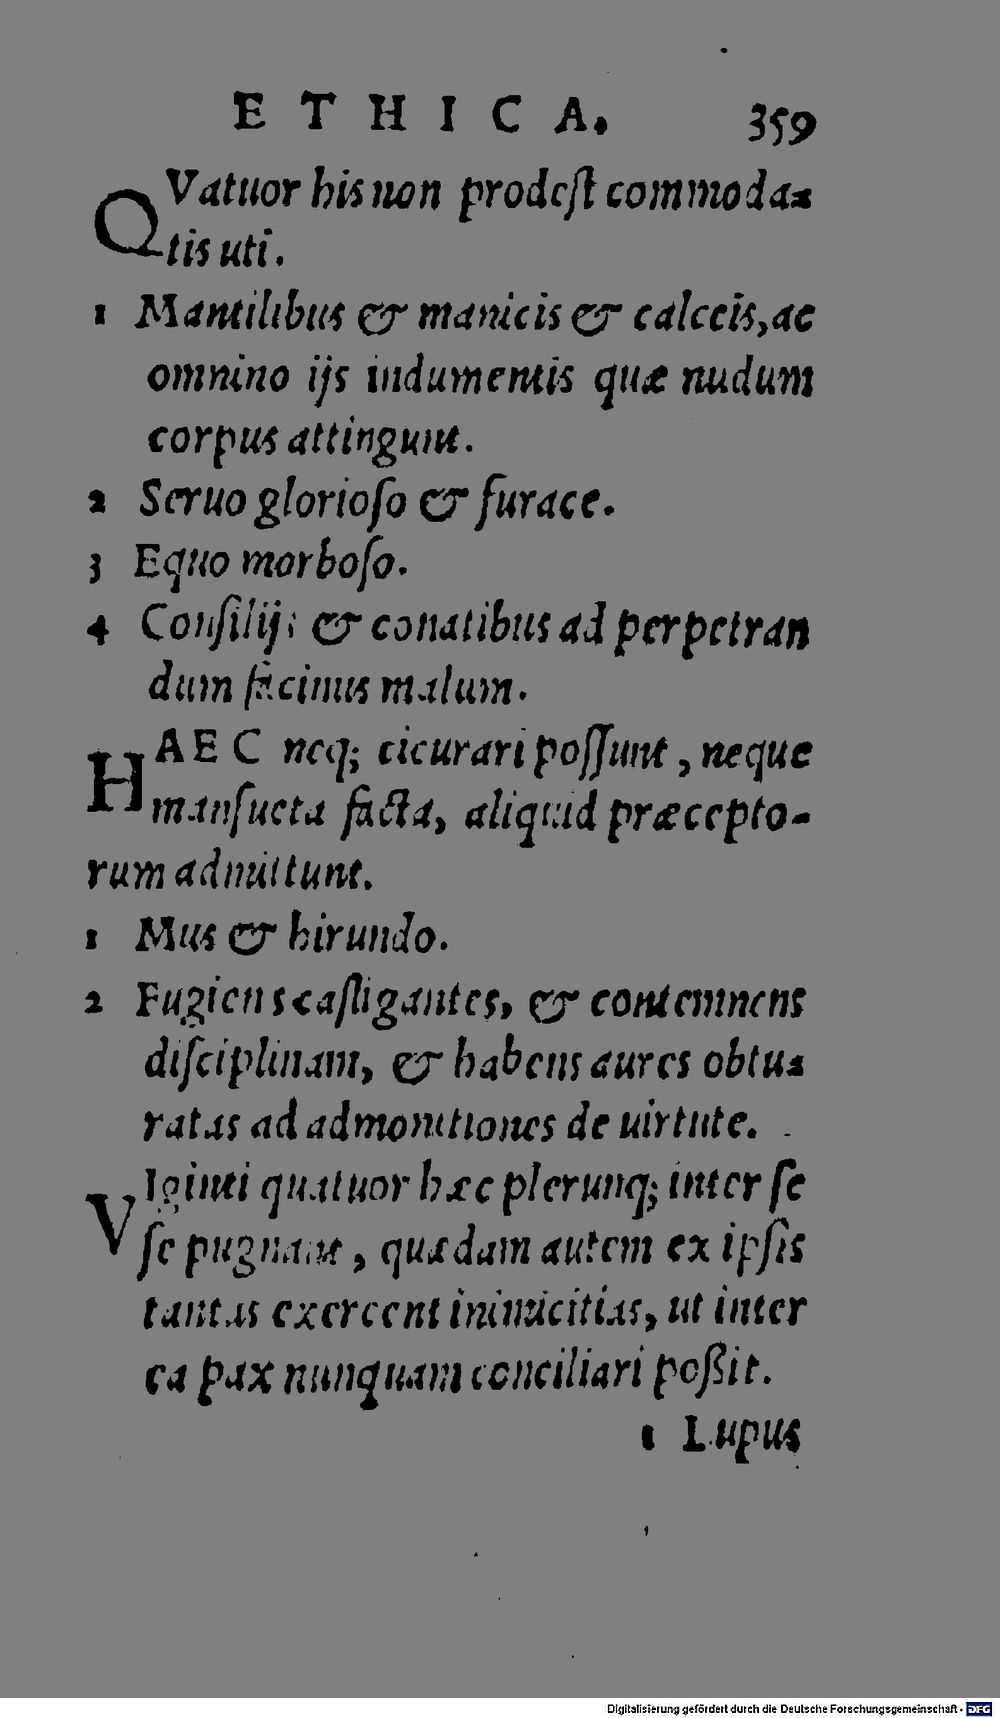 ETHICA. 359
QVatuor his non prodeſt commoda-
tis uti.
1 Mantilibus & manicis & calceis, ac
omnino ijs indumentis quæ nudum
corpus attingunt.
2 Seruo glorioſo & furace.
3 Equo morboſo.
4 Conſilijs & conatibus ad perpetran
dum facinus malum.
HAEC neq; cicurari poſſunt, neque
manſueta facta, aliquid præcepto-
rum admittunt.
1 Mus & hirundo.
2 Fugiens caſtigantes, & contemnens
diſciplinam, & habens aures obtu-
ratas ad admonitiones de uirtute.
VIginti quatuor hæc plerunq; inter ſe
ſe pugnant, quædam autem ex ipſis
tantas exercent inimicitias, ut inter
ea pax nunquam conciliari poßit.
1 Lupus
Digitalisierung gefördert durch die Deutsche Forschungsgemeinschaft - DFG